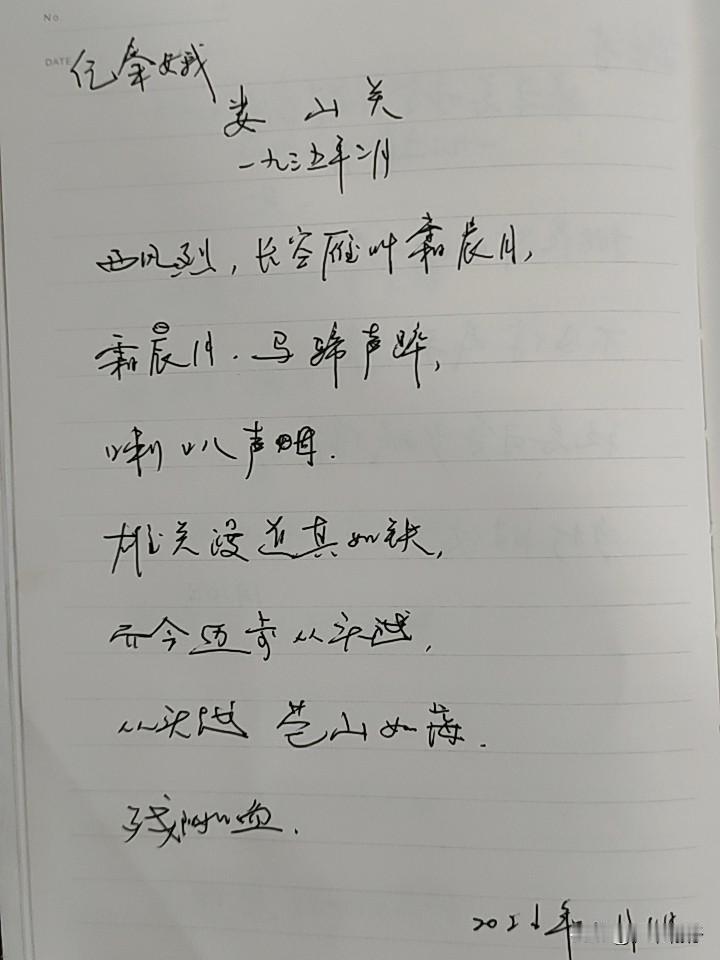 No.
DATE
忆秦娥
娄山关
一九三五年二月
西风烈，长空雁叫霜晨月，
霜晨月．马蹄声碎，
喇叭声咽．
雄关漫道真如铁，
而今迈步从头越，
从头越 苍山如海．
残阳如血．